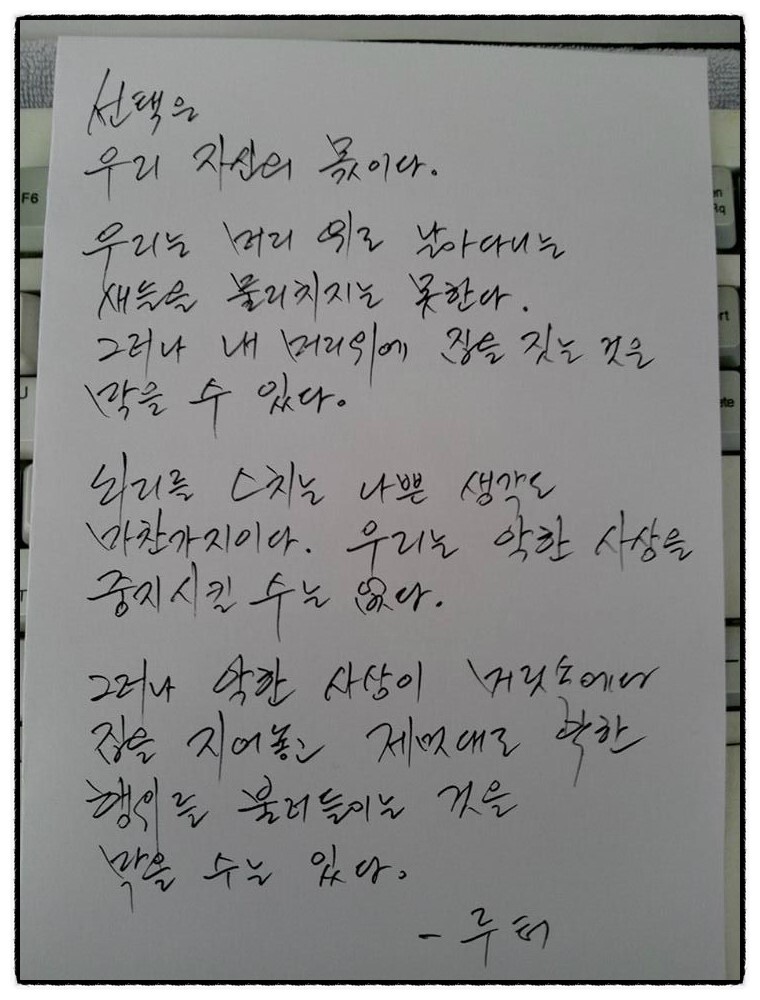 선택은
우리 자신의 몫이다.
우리는 머리 위로 날아다니는
새들을 물리치지는 못한다.
그러나 내 머리위에 집을 짓는 것을
막을 수 있다.
뇌리를 스치는 나쁜 생각도
마찬가지이다. 우리는 악한 사상을
중지시킬 수는 없다.
그러나 악한 사상이 머릿속에다
집을 지어놓고 제멋대로 악한
행위를 불러들이는 것을
막을 수는 있다.
- 루터
F6